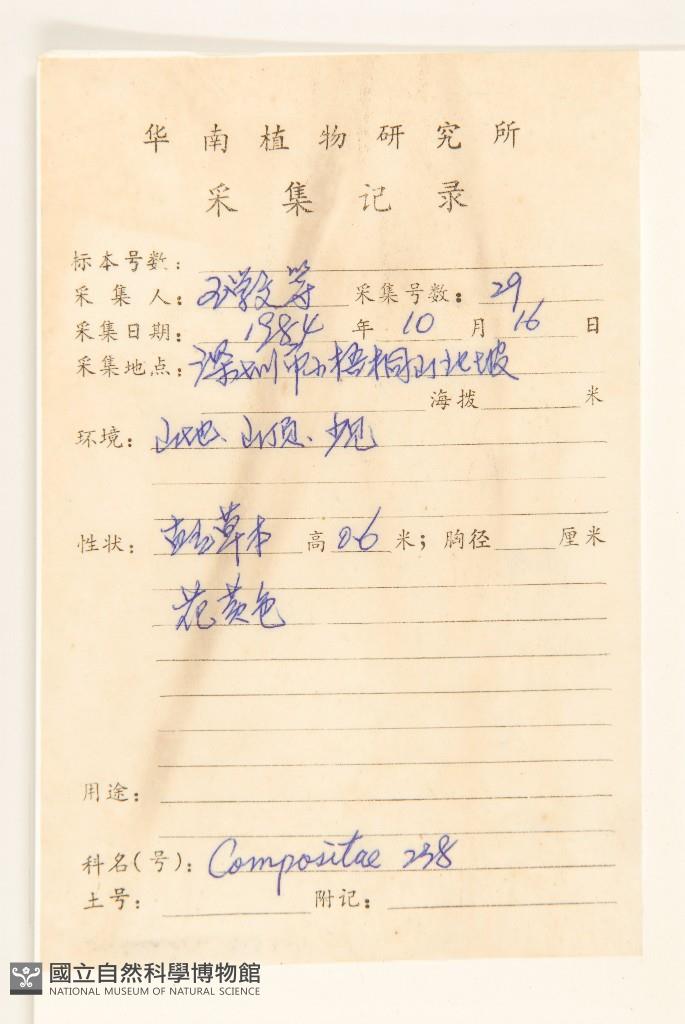 华南植物研究所
采集记录
标本号数:
采集人: 王学文等 采集号数: 29
采集日期: 1984 年 10 月 16 日
采集地点: 深圳市小梧桐山北坡
海拨 米
环境: 山地、山顶、少见
性状: 草本 高 0.6 米; 胸径 厘米
花黄色
用途:
科名(号): Compositae 238
土号: 附记:
國立自然科學博物館
NATIONAL MUSEUM OF NATURAL SCIENCE